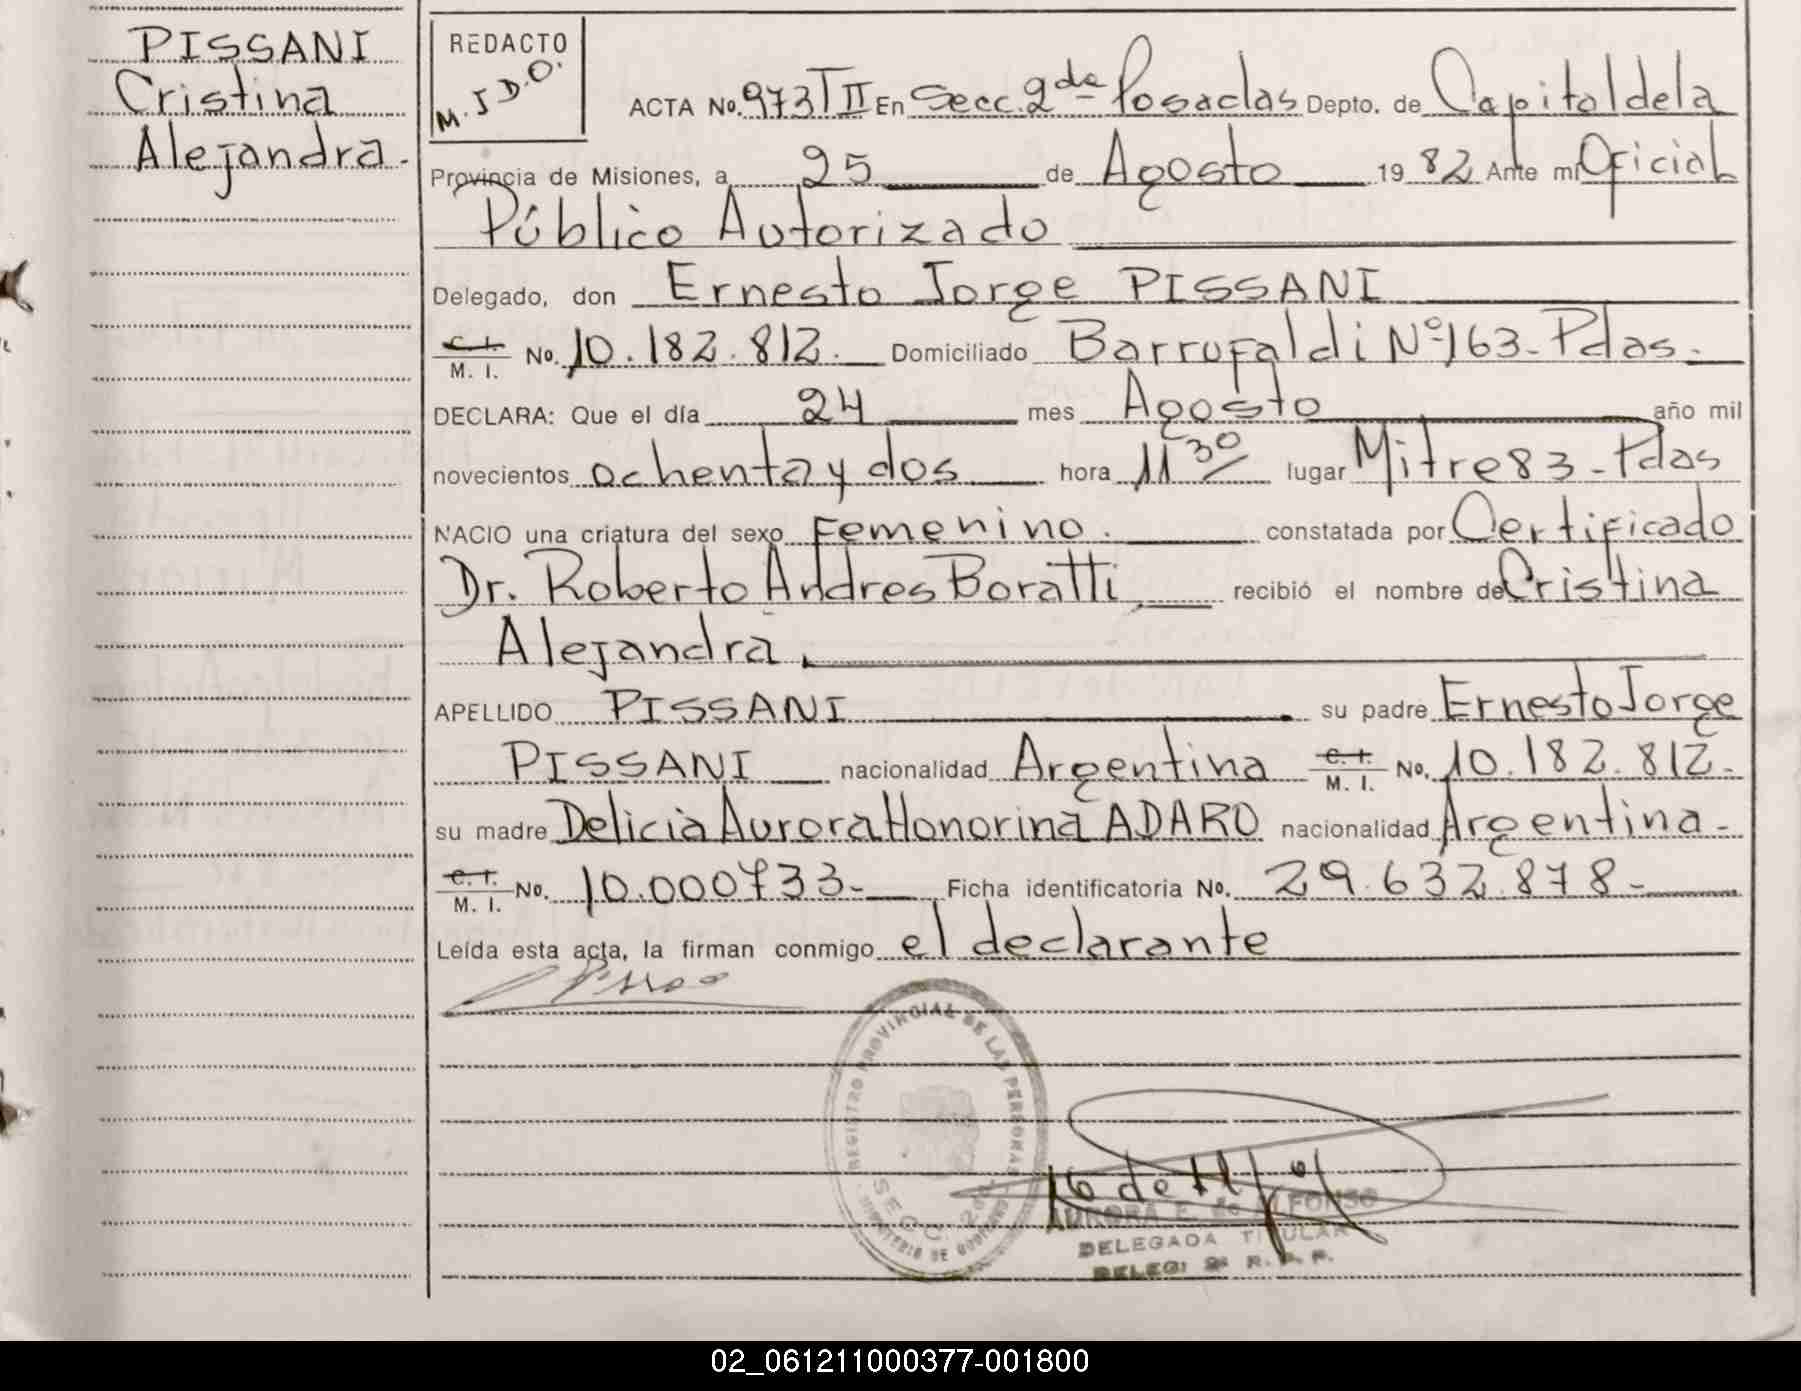 PISSANI
Cristina
Alejandra.
REDACTO
M. J D.O.
ACTA No. 973 T II En Secc. 2da Posadas Depto. de Capital de la
Provincia de Misiones, a 25 de Agosto 1982 Ante mi Oficial
Público Autorizado
Delegado, don Ernesto Jorge PISSANI
C. I. / M. I. No. 10.182.812. Domiciliado Barrufaldi Nº 163 - Pdas.
DECLARA: Que el día 24 mes Agosto año mil
novecientos ochenta y dos hora 11 30 lugar Mitre 83 - Pdas
NACIO una criatura del sexo Femenino. constatada por Certificado
Dr. Roberto Andres Boratti, recibió el nombre de Cristina
Alejandra.
APELLIDO PISSANI su padre Ernesto Jorge
PISSANI nacionalidad Argentina C. I. / M. I. No. 10.182.812.
su madre Delicia Aurora Honorina ADARO nacionalidad Argentina -
C. I. / M. I. No. 10.000733- Ficha identificatoria No. 29.632.878-
Leída esta acta, la firman conmigo el declarante
REGISTRO PROVINCIAL DE LAS PERSONAS
SECC. 2da
MINISTERIO DE GOBIERNO
AURORA E. de ALFONSO
DELEGADA TITULAR
DELEG: 2ª R. P. P.
02_061211000377-001800